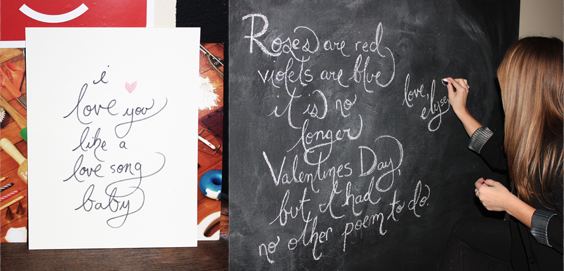 i
love you
like a
love song
baby
Roses are red
violets are blue
it is no
longer
Valentines Day,
but I had
no other poem to do.
love,
elyse